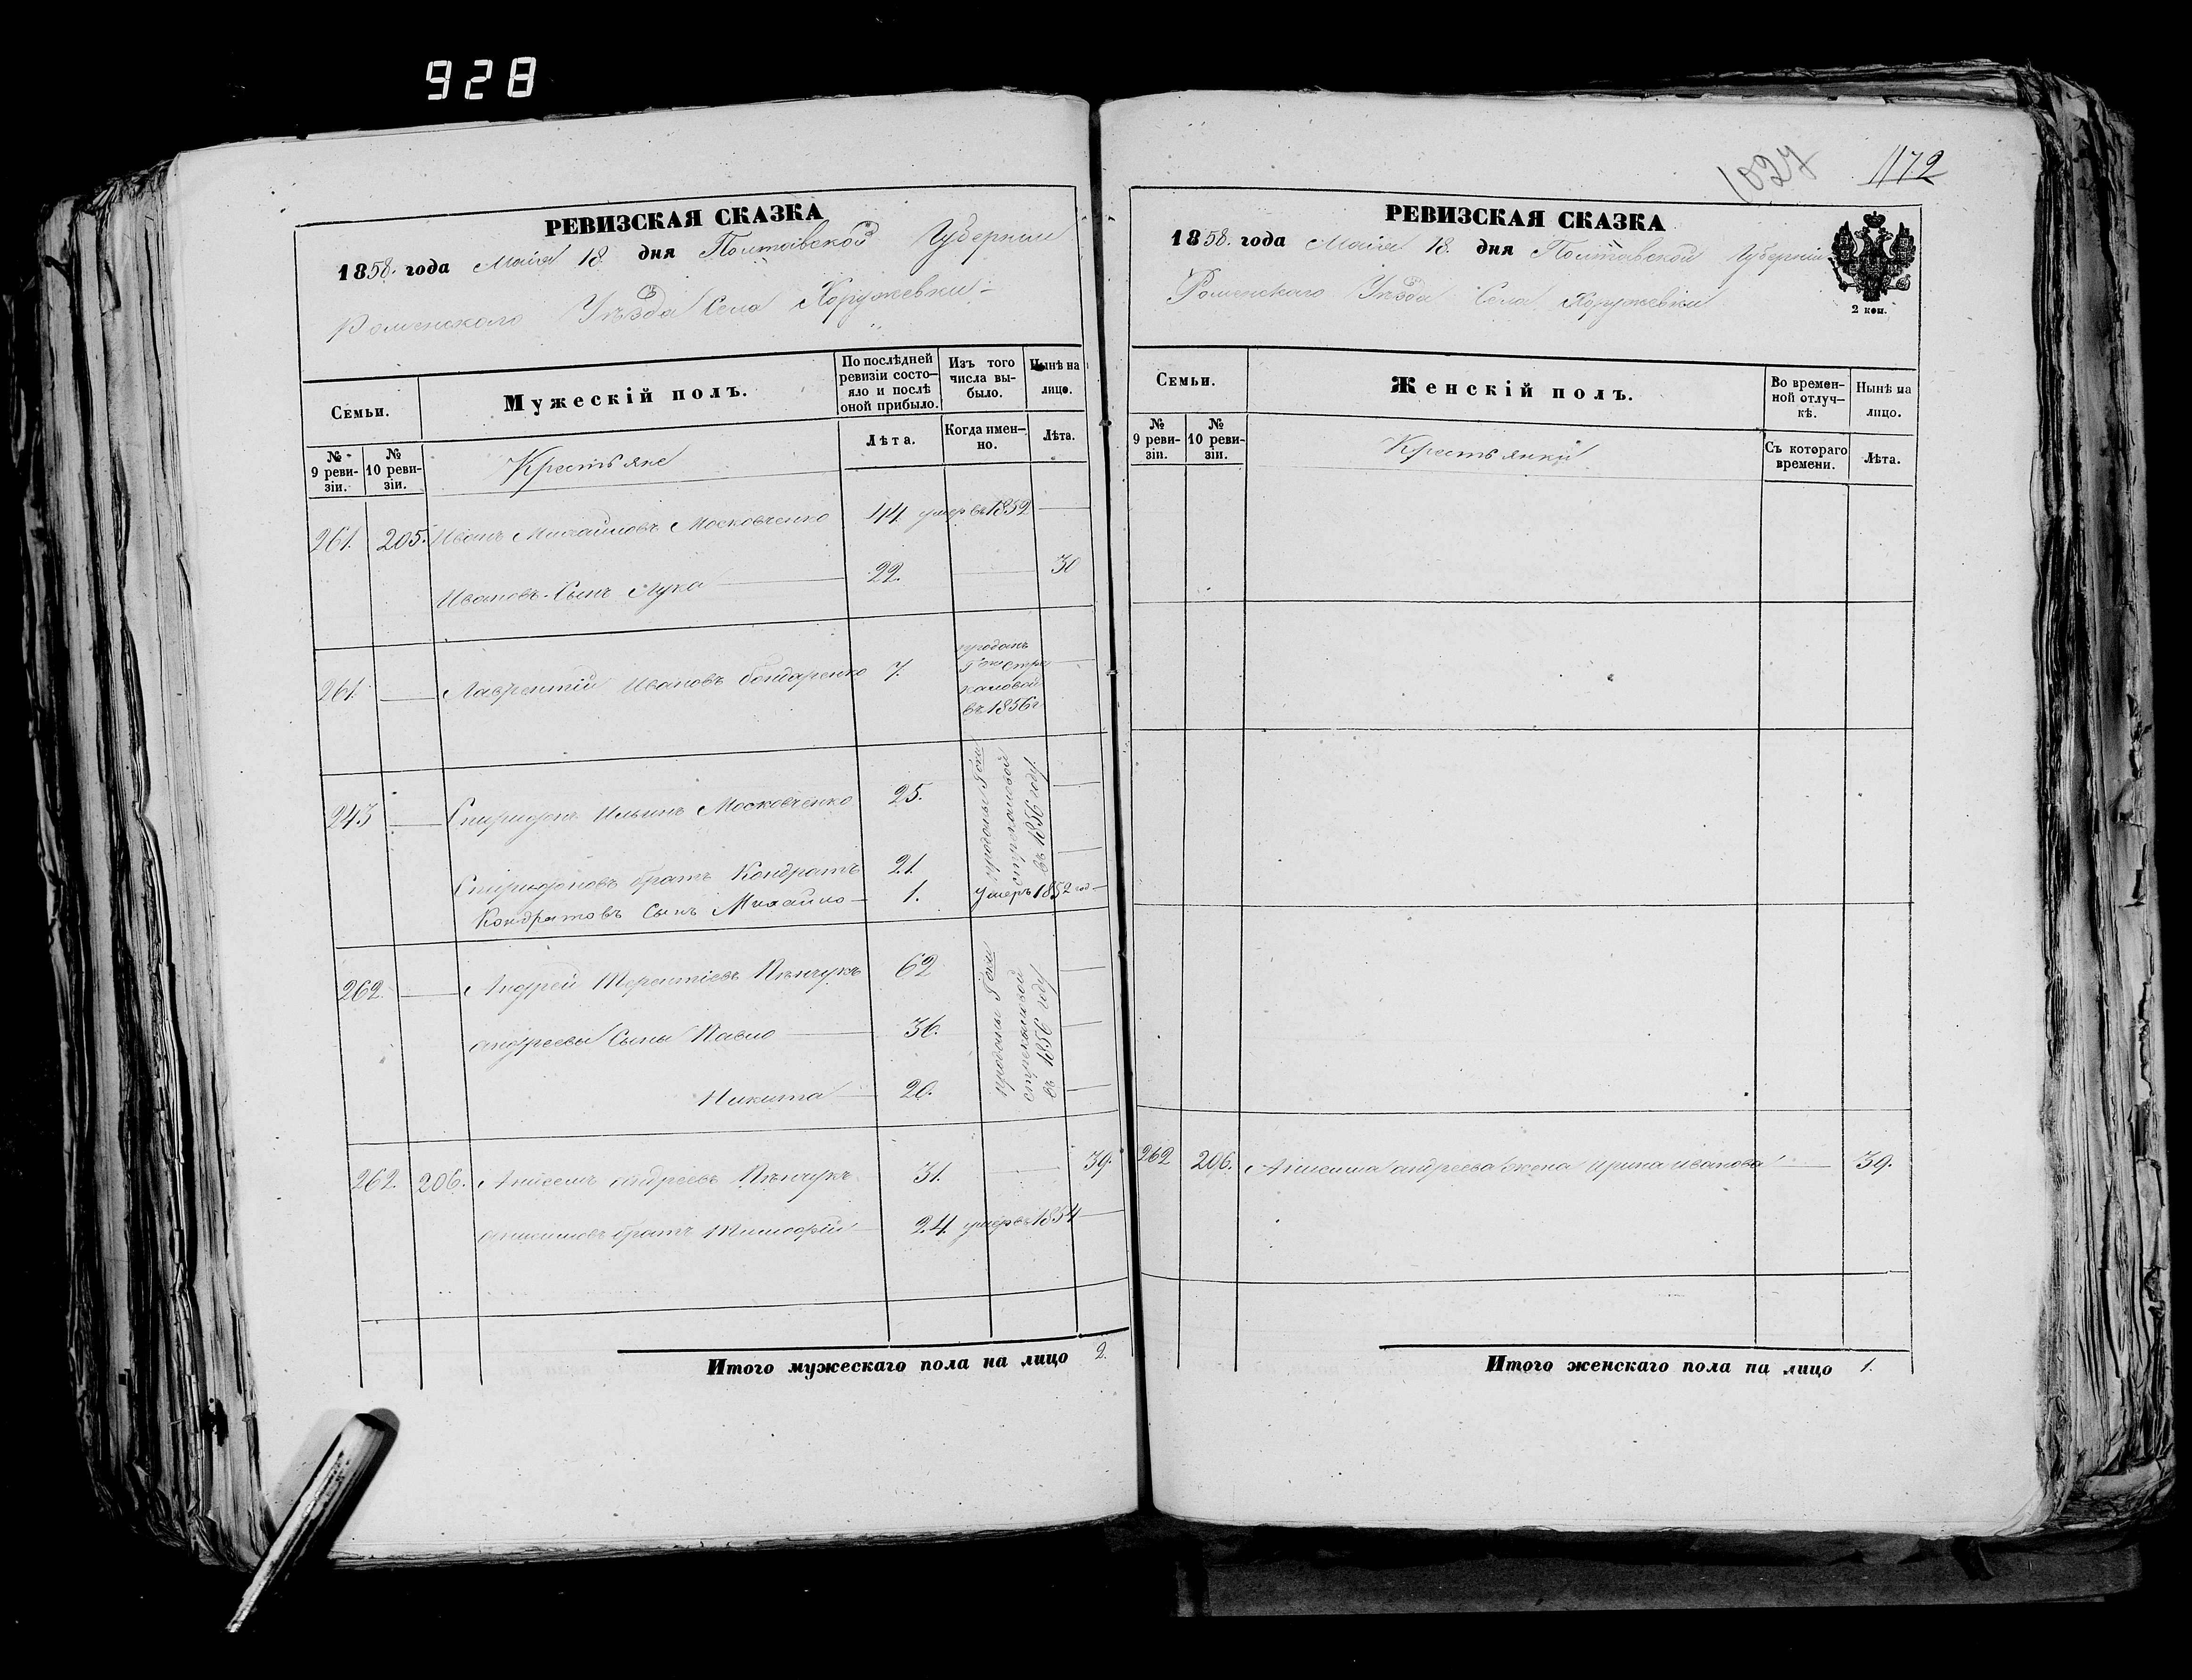 928
РЕВИЗСКАЯ СКАЗКА
1858. года Маія 18. дня Полтавской Губерніи
Роменскаго Уѣзда Села Хоружевки
Семьи.
Мужескій полъ.
По послѣдней ревизіи состояло и послѣ оной прибыло.
Изъ того числа выбыло.
Нынѣ на лицо.
Лѣта.
Когда именно.
Лѣта.
№ 9 ревизіи.
№ 10 ревизіи.
Крестьяне
261. 205. Иванъ Михайловъ Московченко 44 умеръ въ 1852
Ивановъ Сынъ Лука 22. 30
261. Лаврентій Ивановъ Бондаренко 7. проданъ
въ 1856 г
243 Спиридонъ Ильинъ Московченко 25.
Спиридоновъ братъ Кондратъ 21.
проданы
въ 1856 году
Кондратовъ Сынъ Михайло 1. Умеръ 1852 год
262. Андрей Терентіевъ 62
андреевы Сыны Павло 36.
Никита 20.
проданы
въ 1856 году
262. 206. Анисимъ андреевъ 31. 39.
анисимовъ братъ Тимофій 24. умеръ въ 1854
Итого мужескаго пола на лицо 2.
1027
1172
РЕВИЗСКАЯ СКАЗКА
1858. года Маія 18. дня Полтавской Губерніи
Роменскаго Уѣзда Села Хоружевки
2 коп.
Семьи.
Женскій полъ.
Во временной отлучкѣ.
Нынѣ на лицо.
№ 9 ревизіи.
№ 10 ревизіи.
Крестьянки
Съ котораго времени.
Лѣта.
262 206. Анисима андреева жена ирина иванова 39.
Итого женскаго пола на лицо 1.